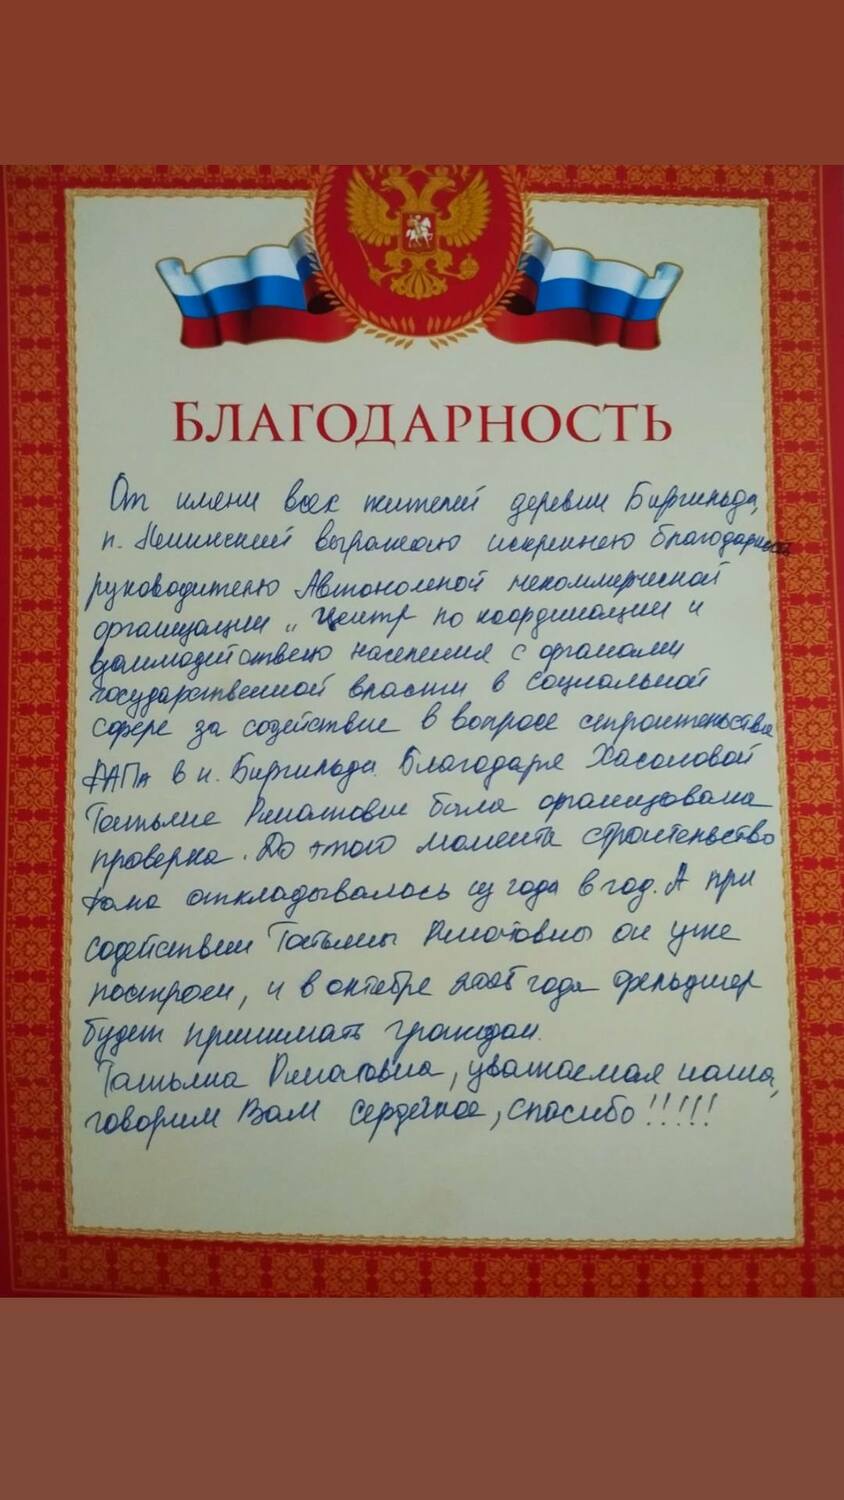 БЛАГОДАРНОСТЬ
От имени всех жителей деревни Биргильда,
п. выражаю искреннею благодарность
руководителю Автономной некоммерческой
организации „Центр по координации и
взаимодействию населения с органами
государственной власти в социальной
сфере за содействие в вопросе строительства
ФАПа в н. Биргильда. Благодаря Хасановой
Татьяне Ринатовне была организована
проверка. До этого момента строительство
откладывалось из года в год. А при
содействии Татьяны Ринатовны он уже
построен, и в октябре 2025 года фельдшер
будет принимать граждан.
Татьяна Ринатовна, уважаемая наша,
говорим Вам сердечное, спасибо!!!!!